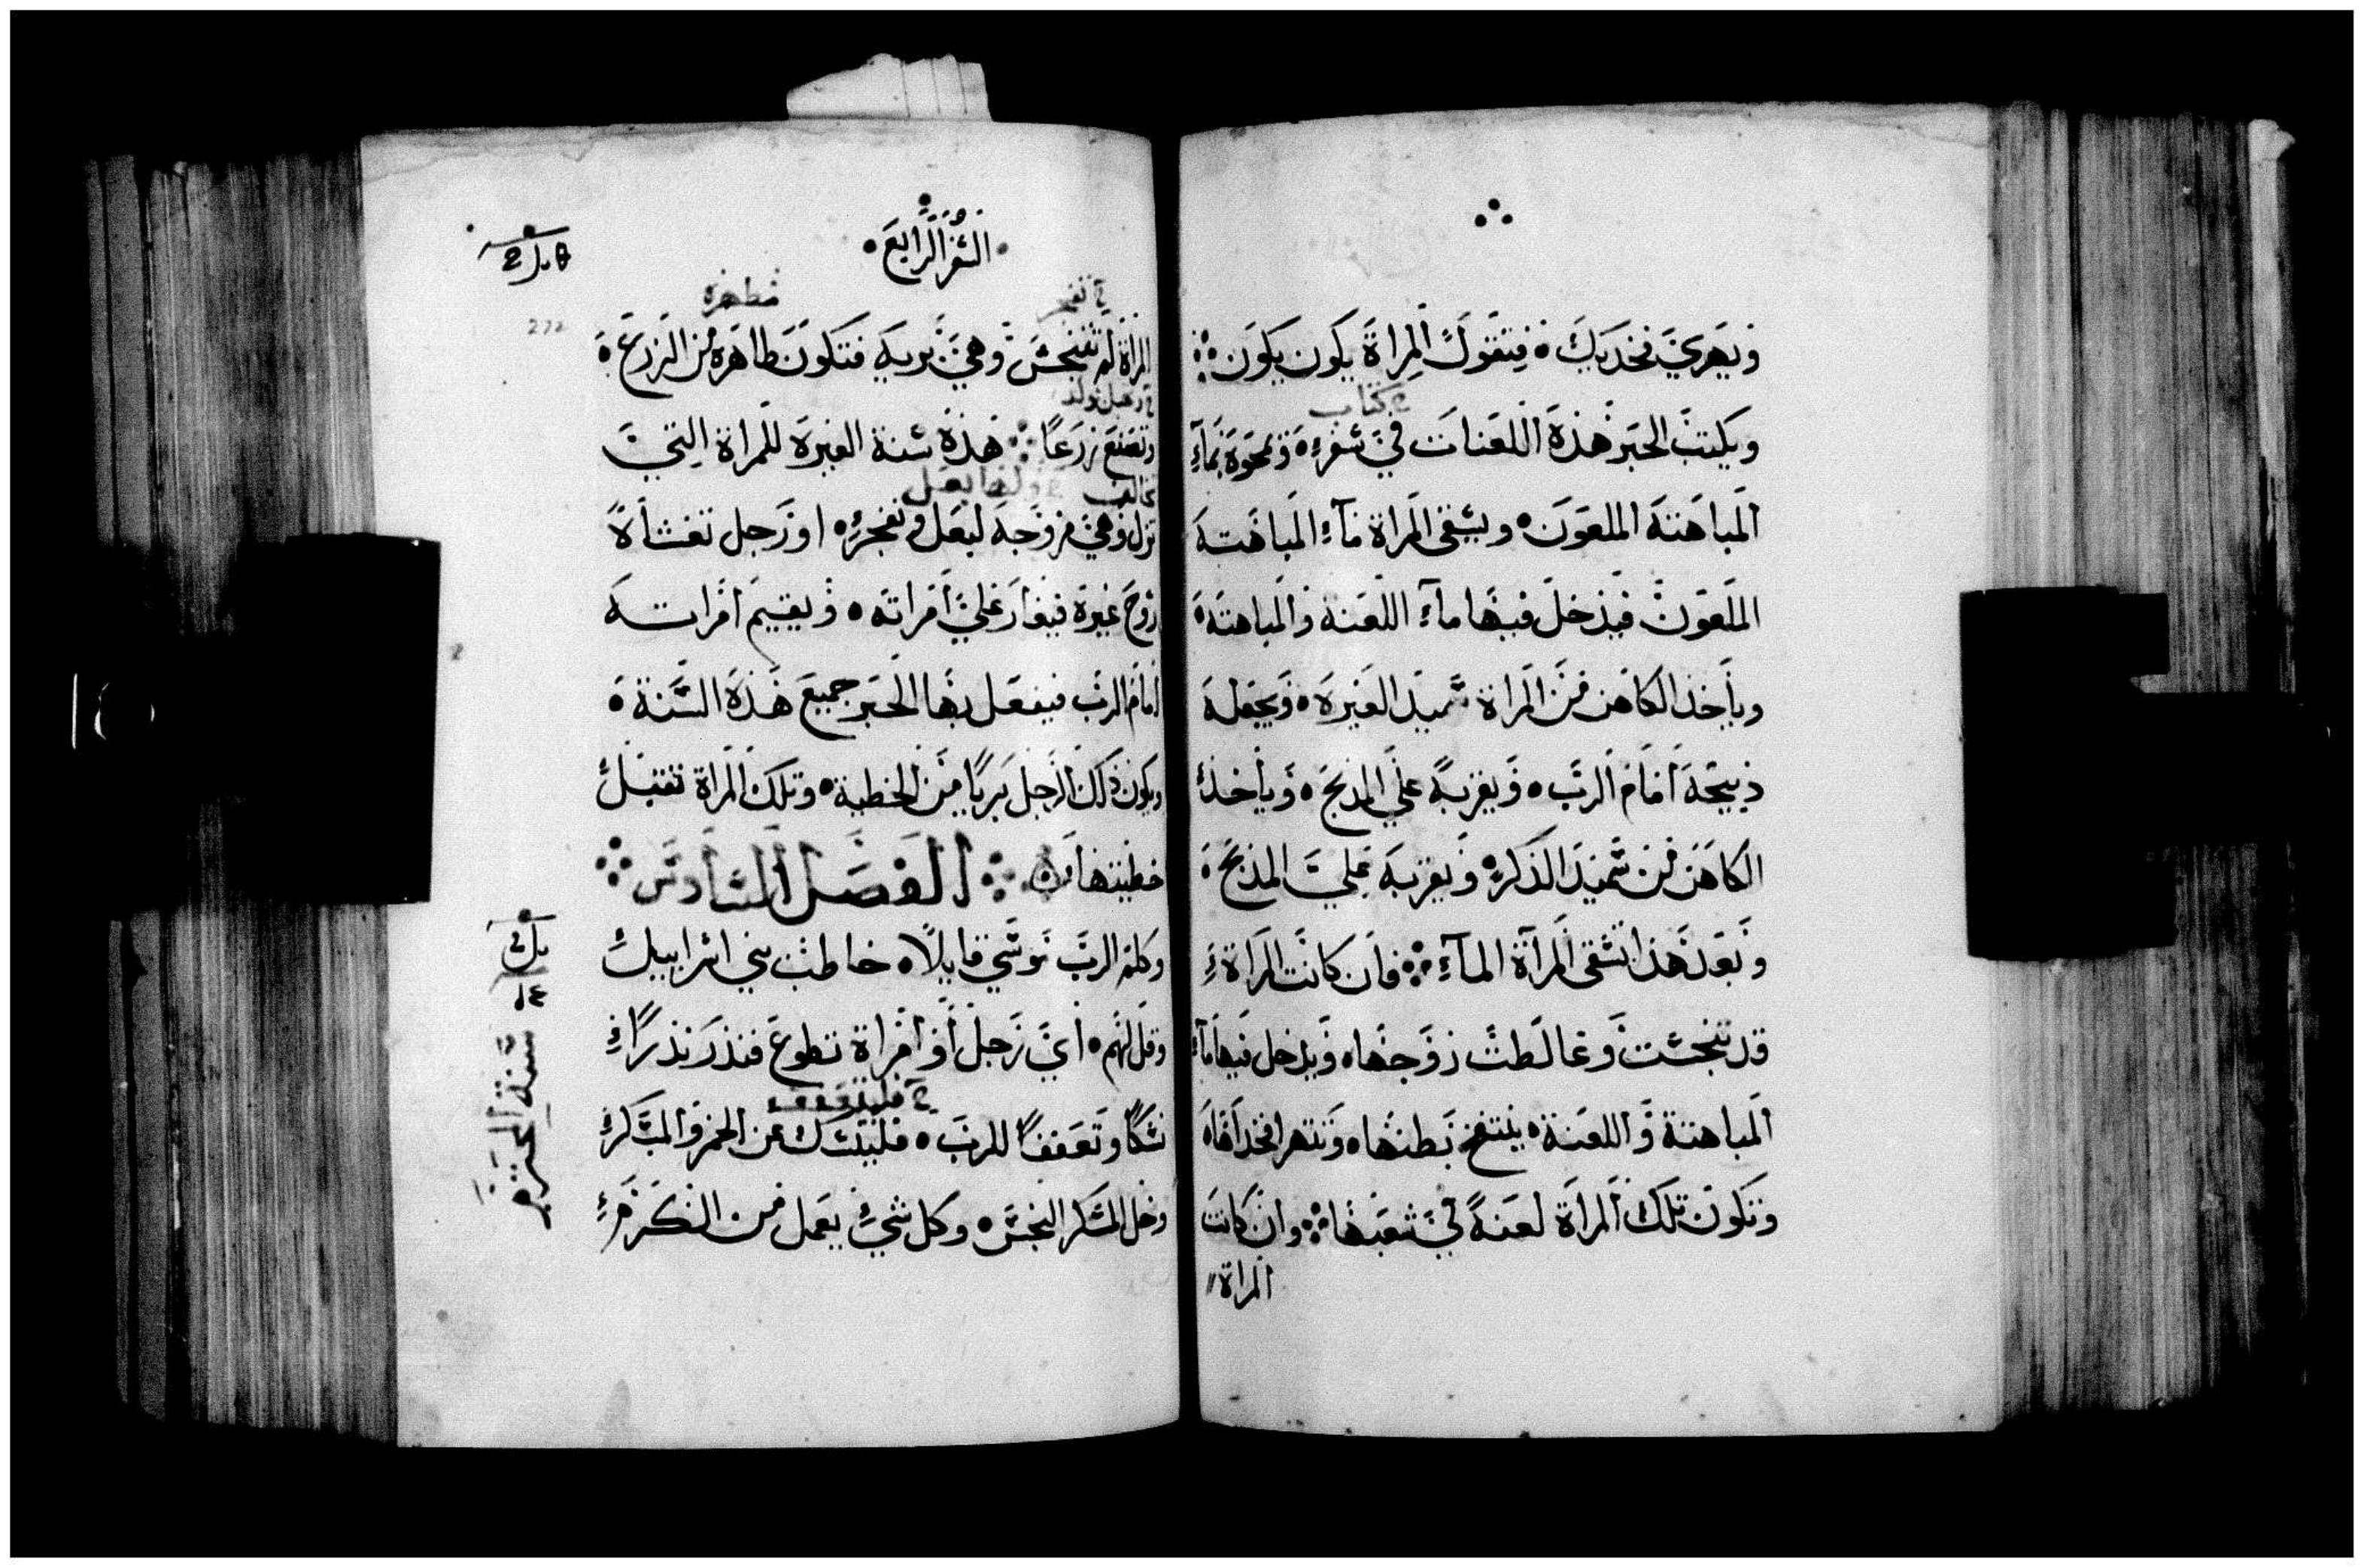 ويهري فخديك فتقول المراة يكون يكون
كتاب
ويكتب الحبر هذه اللعنات في سفر ويمحوه بماء
المباهته الملعون ويسقى المراة ماء المباهته
الملعون فيدخل فيها ماء اللعنة والمباهته
وياخذ الكاهن من المراة سميد الغيره ويجعله
ذبيحة امام الرب ويقربه على المذبح وياخذ
الكاهن من سميد الذكر ويقربه علي المذبح
وبعد هذا تسقى المراة الماء فان كانت المراة
قد تنجست وغالطت زوجها ويدخل فيها ماء
المباهتة واللعنة ينتفخ بطنها وتتهرا فخداها
وتكون تلك المراة لعنة في شعبها وان كانت
المراة
السفر الرابع
272
مطهرة
المراة لم تتنجس وهي بريه فتكون طاهرة من الزرع
وتصنع زرعا هذة سنة الغيرة للمراة التي
تزل وهي مزوجه لبعل وتفجر او رجل تغشاة
روح غيرة فيغار علي امراته ويقيم امراته
امام الرب فيفعل بها الحبر جميع هذة السنة
ويكون ذلك الرجل بريا من الخطية وتلك المراة تقبل
خطيتها الفصل السادس
وكلم الرب موسي قايلا خاطب بني اسراييل
وقل لهم اي رجل او امراة تطوع فنذر نذرا
نسكا وتعففا للرب فليمسك عن الخمر والمسكر
وخل المسكر النجس وكل شي يعمل من الكرم